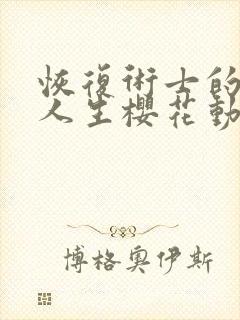 恢復術士的
人生櫻花動
博格奧伊斯